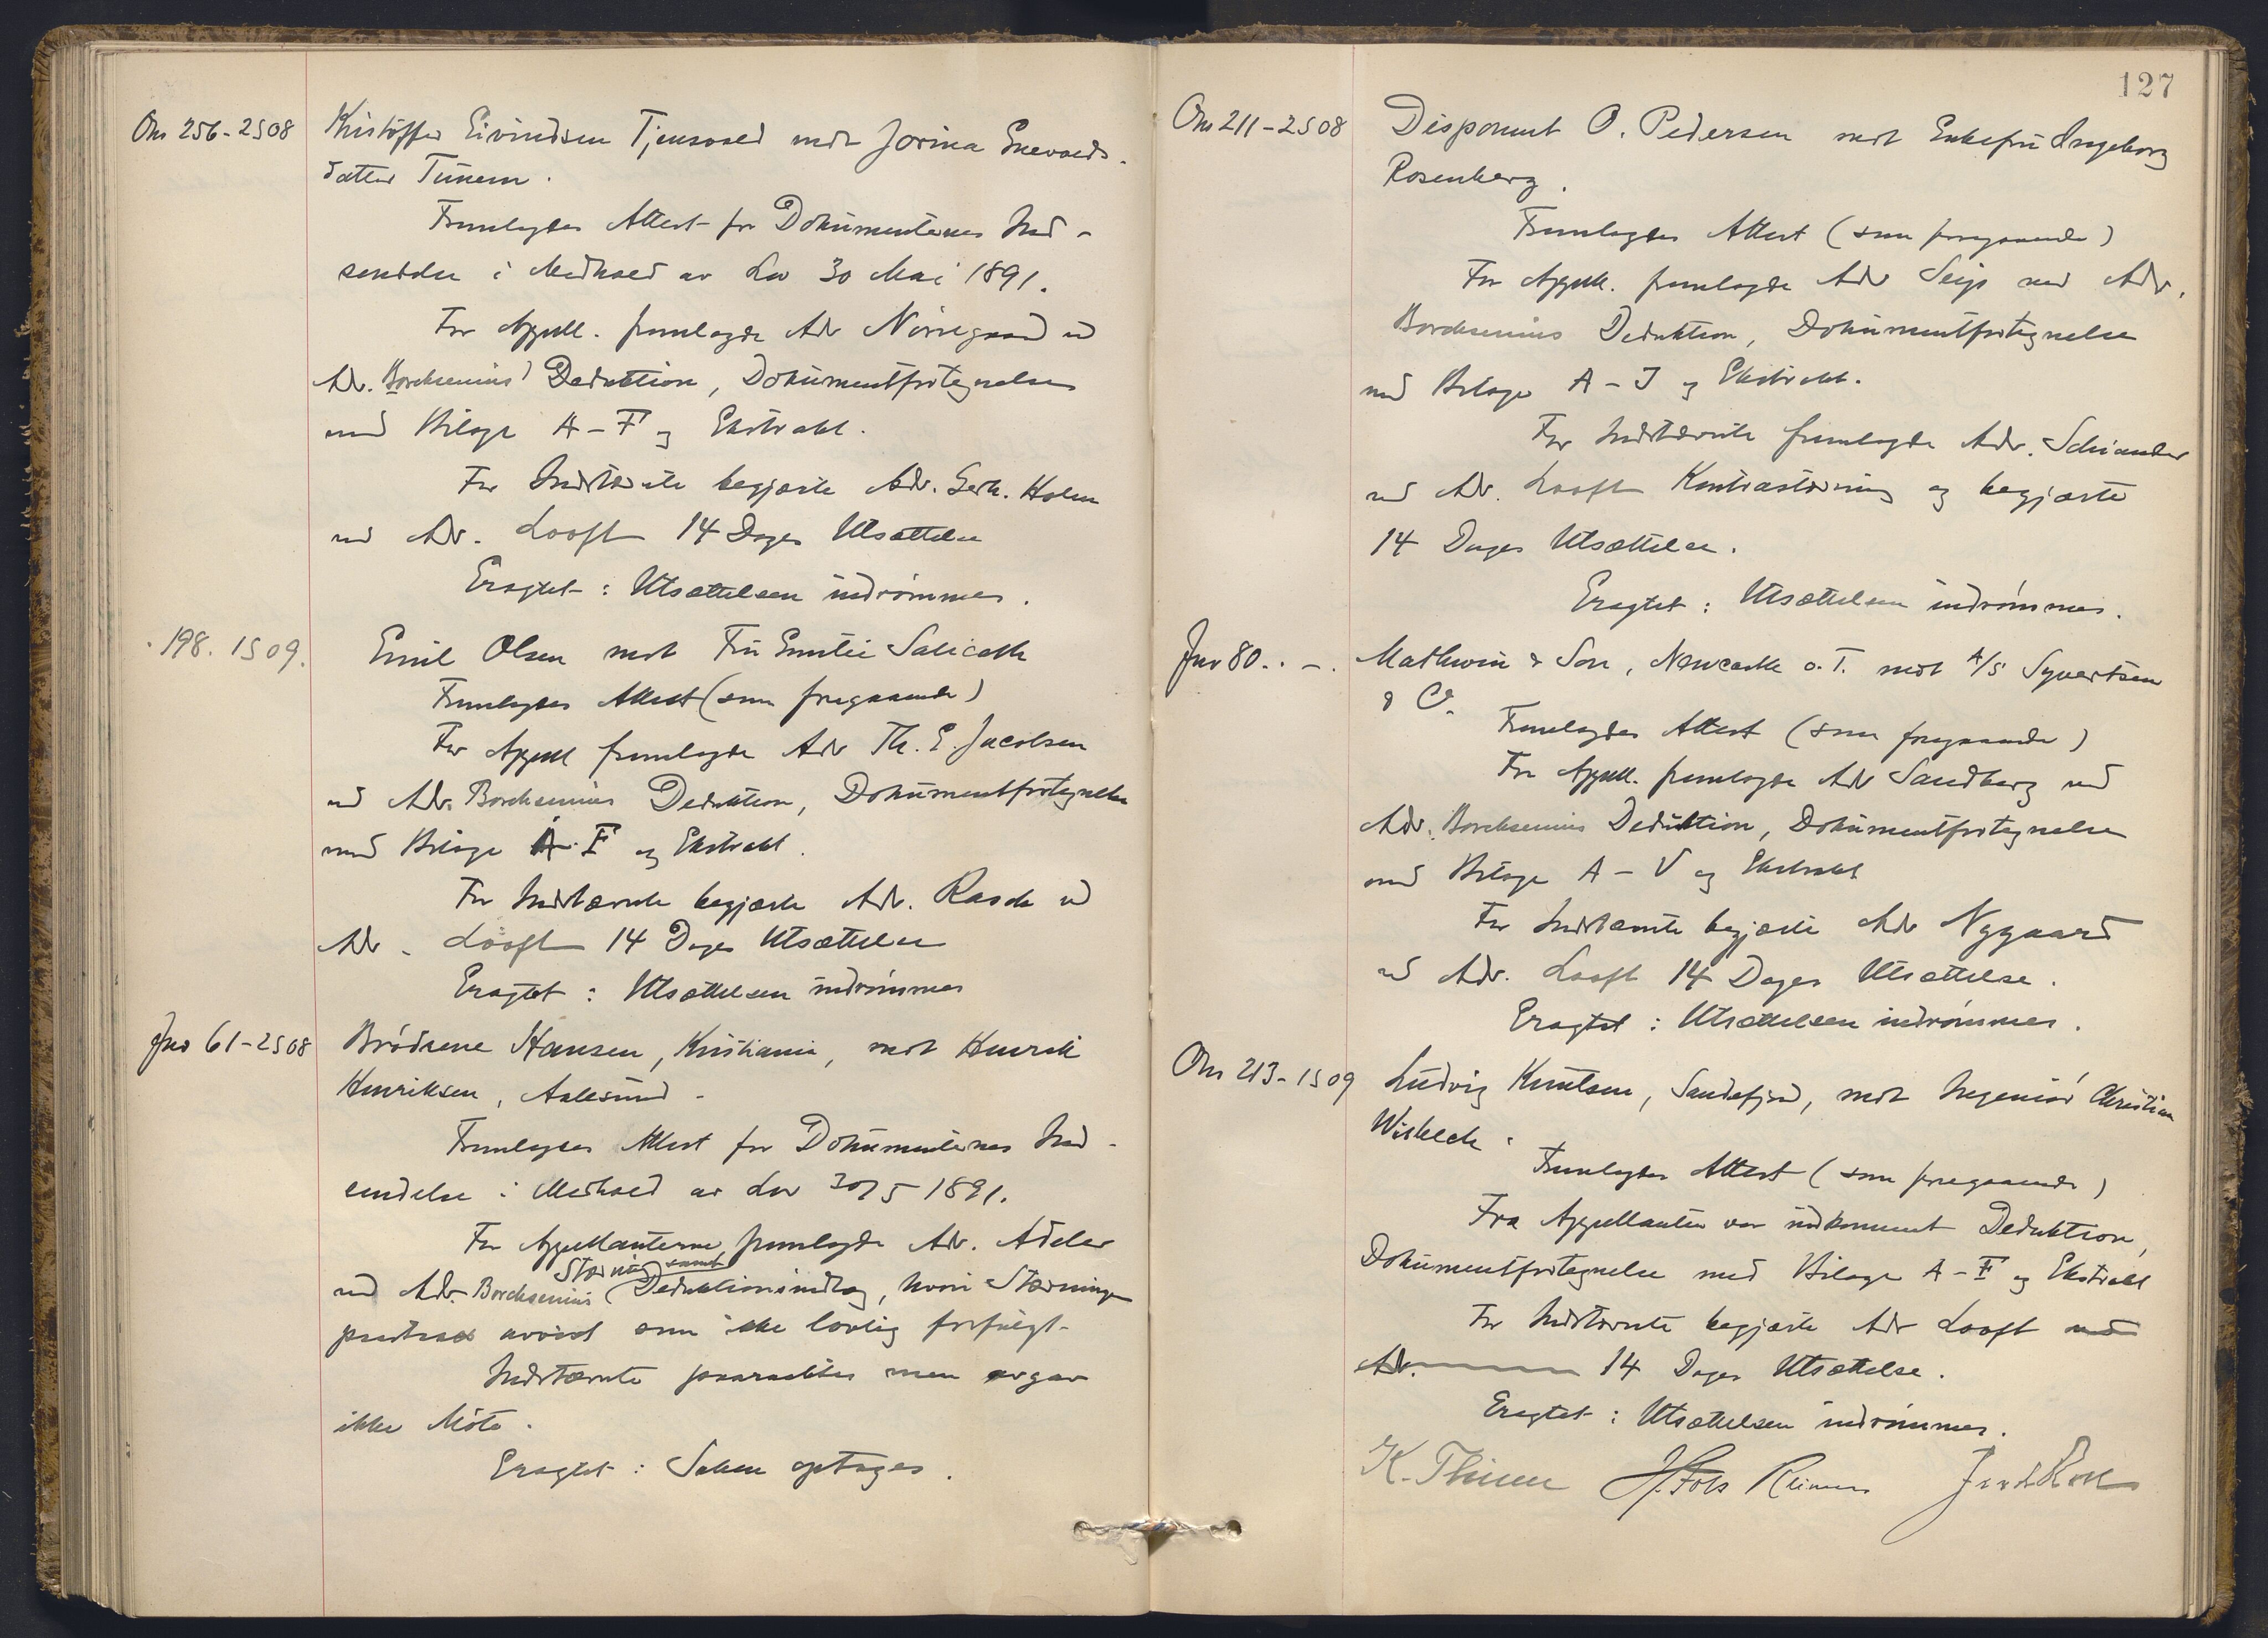 Ons 256 - 2S08
Kristoffer Eivindsen Tjensvold mot Jorina Enevolds-
datter Tunem.
Fremlagdes Attest for Dokumenternes Ind-
sendelse i Medhold av Lov 30 Mai 1891.
For Appell. fremlagde Adv Nörregaard v
Adv. Borchsenius' Deduktion, Dokumentfortegnelse
med Bilage A-F og Ekstrakt.
For Indstævnte begjærte Adv. Gerh. Holm
ved Adv. Looft 14 Dages Utsættelse
Eragtet: Utsættelsen indrömmes.
198. 1S09.
Emil Olsen mot Fru Emilie Salicath
Fremlagdes Attest (som foregaaende)
For Appell fremlagde Adv Th. E. Jacobsen
ved Adv. Borchsenius Deduktion, Dokumentfortegnelse
med Bilage A-F og Ekstrakt.
For Indstævnte begjærte Adv. Rasch v
Adv. Looft 14 Dages Utsættelse
Eragtet: Utsættelsen indrömmes
Fre 61 - 2S08
Brödrene Hansen, Kristiania, mot Henrik
Henriksen, Aalesund.
Fremlagdes Attest for Dokumenternes Ind-
sendelse i Medhold av Lov 30/5 1891.
For Appellanterne fremlagde Adv. Adeler
Stævning samt
ved Adv. Borchsenius Deduktionsindlæg, hvori Stævningen
paastaaes avvist som ikke lovlig forfulgt.
Indstævnte paaraabtes men avgav
ikke Möte.
Eragtet: Saken optages.
127
Ons 211 - 2S08
Disponent O. Pedersen mot Enkefru Ingeborg
Rosenberg.
Fremlagdes Attest (som foregaaende)
For Appell. fremlagde Adv Seip ved Adv.
Borchsenius Deduktion, Dokumentfortegnelse
med Bilage A-J og Ekstrakt.
For Indstævnte fremlagde Adv. Schiander
ved Adv. Looft Kontrastævning og begjærte
14 Dages Utsættelse.
Eragtet: Utsættelsen indrömmes.
Fre 80. . - .
Mathwin & Son, Newcastle o. T. mot A/S Syvertsen
& Co.
Fremlagdes Attest (som foregaaende)
For Appell. fremlagde Adv Sandberg ved
Adv. Borchsenius Deduktion, Dokumentfortegnelse
med Bilage A-V og Ekstrakt
For Indstævnte begjærte Adv Nygaard
ved Adv. Looft 14 Dages Utsættelse.
Eragtet: Utsættelsen indrömmes.
Ons 213 - 1S09
Ludvig Knutsen, Sandefjord, mot Ingeniör Christian
Wisbech.
Fremlagdes Attest (som foregaaende)
Fra Appellanten var indkommet Deduktion,
Dokumentfortegnelse med Bilage A-F og Ekstrakt
For Indstævnte begjærte Adv Looft ved
Adv. 14 Dages Utsættelse.
Eragtet: Utsættelsen indrömmes.
K. Thinn H. Foss Reimers